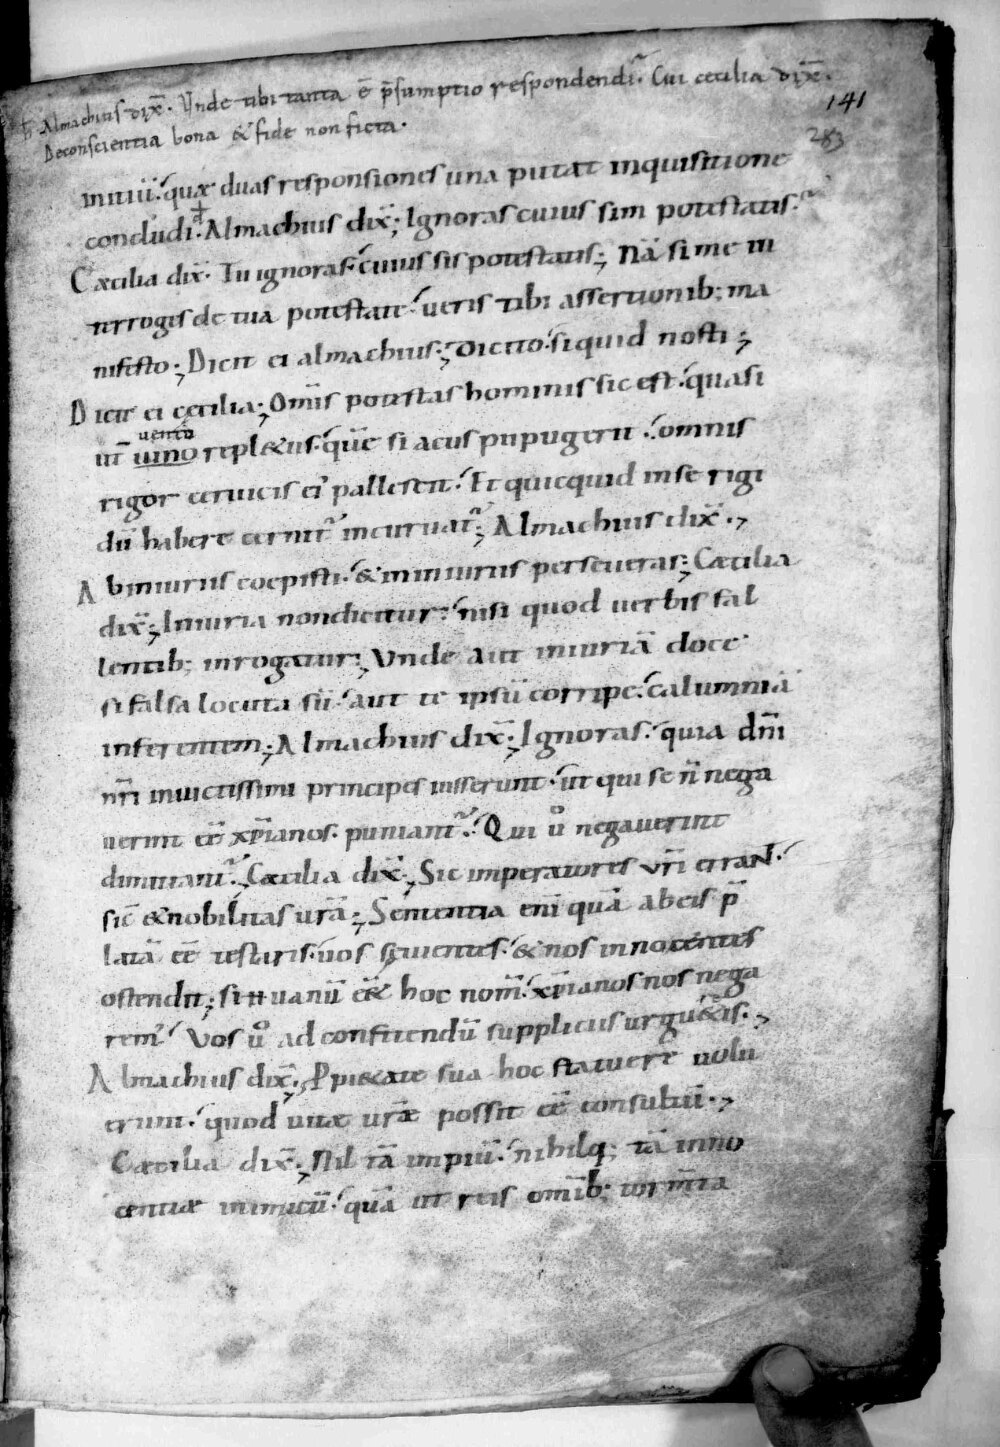 Almachius dix̄. Unde tibi tanta ē p̄sumptio respondendi. Cui cecilia dix̄.
Deconscientia bona & fide non ficta.
141
283
initiū. quae duas responsiones una putat inquisitione
concludi. Almachius dix̄; Ignoras cuius sim potestatis.
Caecilia dix̄. Tu ignoras. cuius sis potestatis; Nā si me in
terrogis de tua potestate. ueris tibi assertionib; ma
nifesto; Dicit ei almachius; Dicito. siquid nosti;
Dicit ei cecilia; Om̄is potestas hominis sic est. quasi
uento
ut̄ uino repl&us. quē si acus pupugerit. omnis
rigor ceruicis ei pallescit. Et quicquid inse rigi
dū habere cernit̄ incuruat̄; Almachius dix̄.
Abiniuriis coepisti. & ininiuriis perseueras; Caecilia
dix̄; Iniuria nondicitur. nisi quod uerbis fal
lentib; inrogatur; Unde aut iniuriā doce
si falsa locuta sū. aut te ipsū corripe. calumniā
inferentem; Almachius dix̄; Ignoras. quia dn̄i
nr̄i inuictissimi principes iusserunt. ut qui se n̄ nega
uerint eē xp̄ianos. puniant̄. Qui ů negauerint
dimittant̄; Caecilia dix̄; Sic imperatores vr̄i errant.
sic̄ & nobilitas urā; Sententia eni quā abeis p̄
latā eē testaris. uos seuientes. & nos innocentes
ostendit; si uanū eē& hoc nom̄. xp̄ianos nos nega
rem̄. Vos ů ad confitendū suppliciis urgu&is.
Almachius dix̄; Ppi&ate sua hoc statuere uolu
erunt. quod uitae urae possit eē consultū.
Caecilia dix̄; Nil tā impiū. nihilq; tā inno
centiae inimicū. quā ut reis omib; tormn̄ta